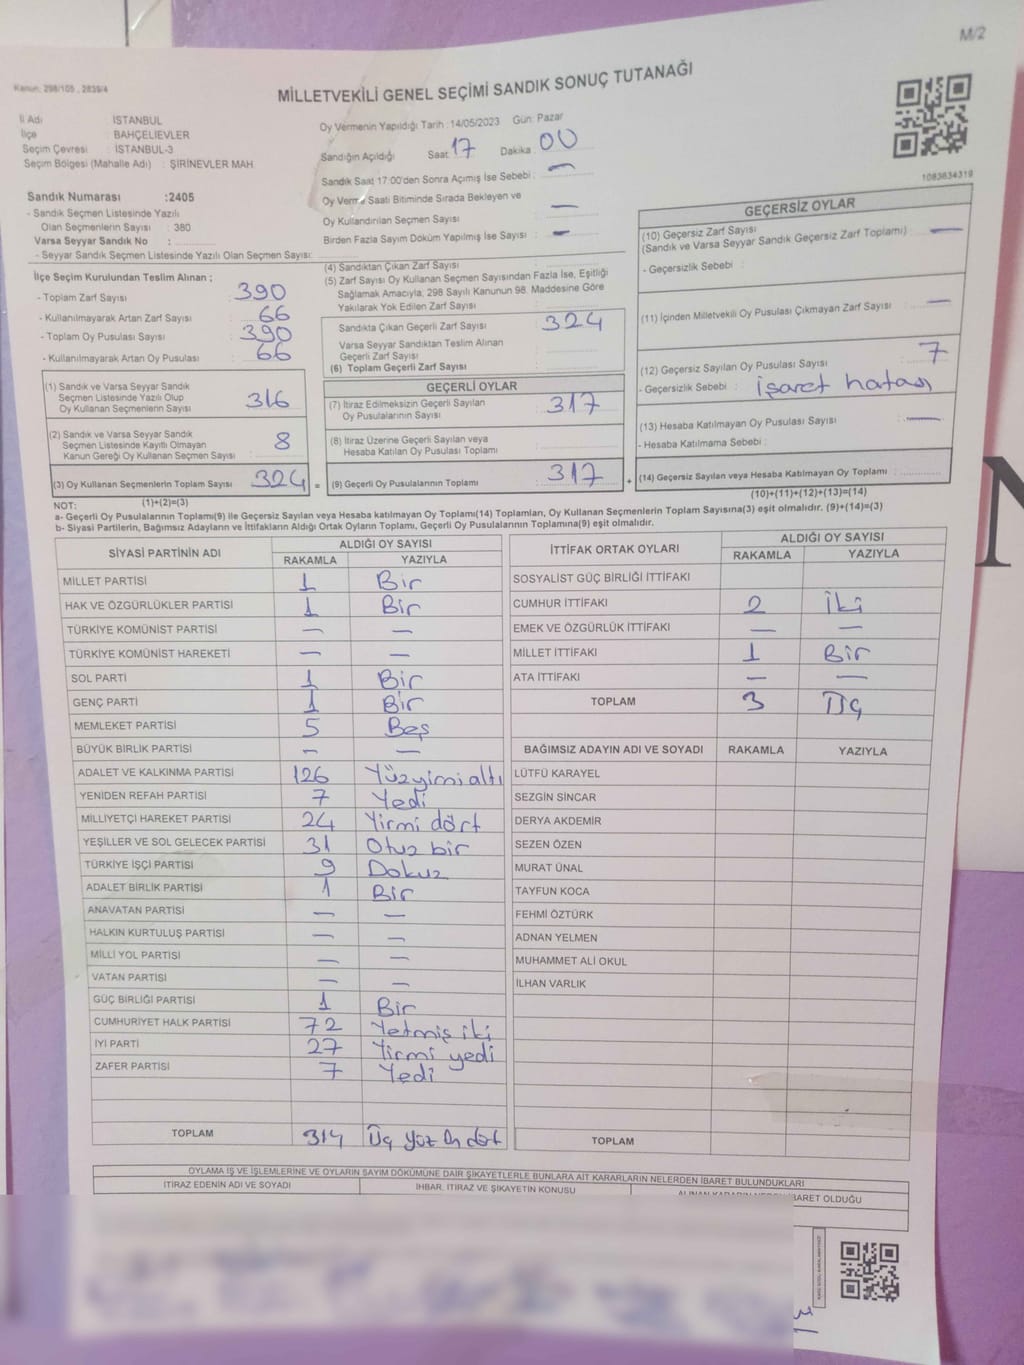 M/2
Kanun: 298/105 , 2839/4
MİLLETVEKİLİ GENEL SEÇİMİ SANDIK SONUÇ TUTANAĞI
İl Adı : İSTANBUL
İlçe : BAHÇELİEVLER
Seçim Çevresi : İSTANBUL-3
Seçim Bölgesi (Mahalle Adı) : ŞİRİNEVLER MAH.
Oy Vermenin Yapıldığı Tarih : 14/05/2023 Gün: Pazar
Sandığın Açıldığı Saat: 17 Dakika : 00
Sandık Saat 17:00'den Sonra Açımış İse Sebebi : —
Oy Verme Saati Bitiminde Sırada Bekleyen ve
Oy Kullandırılan Seçmen Sayısı —
Birden Fazla Sayım Döküm Yapılmış İse Sayısı : —
1083634319
Sandık Numarası :2405
- Sandık Seçmen Listesinde Yazılı
Olan Seçmenlerin Sayısı : 380
Varsa Seyyar Sandık No :
- Seyyar Sandık Seçmen Listesinde Yazılı Olan Seçmen Sayısı:
İlçe Seçim Kurulundan Teslim Alınan ;
- Toplam Zarf Sayısı 390
- Kullanılmayarak Artan Zarf Sayısı : 66
- Toplam Oy Pusulası Sayısı : 390
- Kullanılmayarak Artan Oy Pusulası : 66
(1) Sandık ve Varsa Seyyar Sandık
Seçmen Listesinde Yazılı Olup
Oy Kullanan Seçmenlerin Sayısı : 316
(2) Sandık ve Varsa Seyyar Sandık
Seçmen Listesinde Kayıtlı Olmayan
Kanun Gereği Oy Kullanan Seçmen Sayısı : 8
(3) Oy Kullanan Seçmenlerin Toplam Sayısı : 324 =
(1)+(2)=(3)
(4) Sandıktan Çıkan Zarf Sayısı :
(5) Zarf Sayısı Oy Kullanan Seçmen Sayısından Fazla İse, Eşitliği
Sağlamak Amacıyla, 298 Sayılı Kanunun 98. Maddesine Göre
Yakılarak Yok Edilen Zarf Sayısı :
Sandıkta Çıkan Geçerli Zarf Sayısı : 324
Varsa Seyyar Sandıktan Teslim Alınan
Geçerli Zarf Sayısı :
(6) Toplam Geçerli Zarf Sayısı :
GEÇERLİ OYLAR
(7) İtiraz Edilmeksizin Geçerli Sayılan
Oy Pusulalarının Sayısı : 317
(8) İtiraz Üzerine Geçerli Sayılan veya
Hesaba Katılan Oy Pusulası Toplamı :
(9) Geçerli Oy Pusulalarının Toplamı : 317 +
GEÇERSİZ OYLAR
(10) Geçersiz Zarf Sayısı : —
(Sandık ve Varsa Seyyar Sandık Geçersiz Zarf Toplamı)
- Geçersizlik Sebebi :
(11) İçinden Milletvekili Oy Pusulası Çıkmayan Zarf Sayısı : —
(12) Geçersiz Sayılan Oy Pusulası Sayısı : 7
- Geçersizlik Sebebi : işaret hatası
(13) Hesaba Katılmayan Oy Pusulası Sayısı : —
- Hesaba Katılmama Sebebi :
(14) Geçersiz Sayılan veya Hesaba Katılmayan Oy Toplamı :
(10)+(11)+(12)+(13)=(14)
NOT:
a- Geçerli Oy Pusulalarının Toplamı(9) ile Geçersiz Sayılan veya Hesaba Katılmayan Oy Toplamı(14) Toplamları, Oy Kullanan Seçmenlerin Toplam Sayısına(3) eşit olmalıdır. (9)+(14)=(3)
b- Siyasi Partilerin, Bağımsız Adayların ve İttifakların Aldığı Ortak Oyların Toplamı, Geçerli Oy Pusulalarının Toplamına(9) eşit olmalıdır.
SİYASİ PARTİNİN ADI ALDIĞI OY SAYISI
RAKAMLA YAZIYLA
MİLLET PARTİSİ 1 Bir
HAK VE ÖZGÜRLÜKLER PARTİSİ 1 Bir
TÜRKİYE KOMÜNİST PARTİSİ — —
TÜRKİYE KOMÜNİST HAREKETİ — —
SOL PARTİ 1 Bir
GENÇ PARTİ 1 Bir
MEMLEKET PARTİSİ 5 Beş
BÜYÜK BİRLİK PARTİSİ — —
ADALET VE KALKINMA PARTİSİ 126 Yüzyimi altı
YENİDEN REFAH PARTİSİ 7 Yedi
MİLLİYETÇİ HAREKET PARTİSİ 24 Yirmi dört
YEŞİLLER VE SOL GELECEK PARTİSİ 31 Otuz bir
TÜRKİYE İŞÇİ PARTİSİ 9 Dokuz
ADALET BİRLİK PARTİSİ 1 Bir
ANAVATAN PARTİSİ — —
HALKIN KURTULUŞ PARTİSİ — —
MİLLİ YOL PARTİSİ — —
VATAN PARTİSİ — —
GÜÇ BİRLİĞİ PARTİSİ 1 Bir
CUMHURİYET HALK PARTİSİ 72 Yetmiş iki
İYİ PARTİ 27 Yirmi yedi
ZAFER PARTİSİ 7 Yedi
TOPLAM 314 Üç yüz on dört
İTTİFAK ORTAK OYLARI ALDIĞI OY SAYISI
RAKAMLA YAZIYLA
SOSYALİST GÜÇ BİRLİĞİ İTTİFAKI
CUMHUR İTTİFAKI 2 İki
EMEK VE ÖZGÜRLÜK İTTİFAKI — —
MİLLET İTTİFAKI 1 Bir
ATA İTTİFAKI — —
TOPLAM 3 Üç
BAĞIMSIZ ADAYIN ADI VE SOYADI RAKAMLA YAZIYLA
LÜTFÜ KARAYEL
SEZGİN SİNCAR
DERYA AKDEMİR
SEZEN ÖZEN
MURAT ÜNAL
TAYFUN KOCA
FEHMİ ÖZTÜRK
ADNAN YELMEN
MUHAMMET ALİ OKUL
İLHAN VARLIK
TOPLAM
OYLAMA İŞ VE İŞLEMLERİNE VE OYLARIN SAYIM DÖKÜMÜNE DAİR ŞİKAYETLERLE BUNLARA AİT KARARLARIN NELERDEN İBARET BULUNDUKLARI
İTİRAZ EDENİN ADI VE SOYADI İHBAR, İTİRAZ VE ŞİKAYETİN KONUSU İBARET OLDUĞU
N